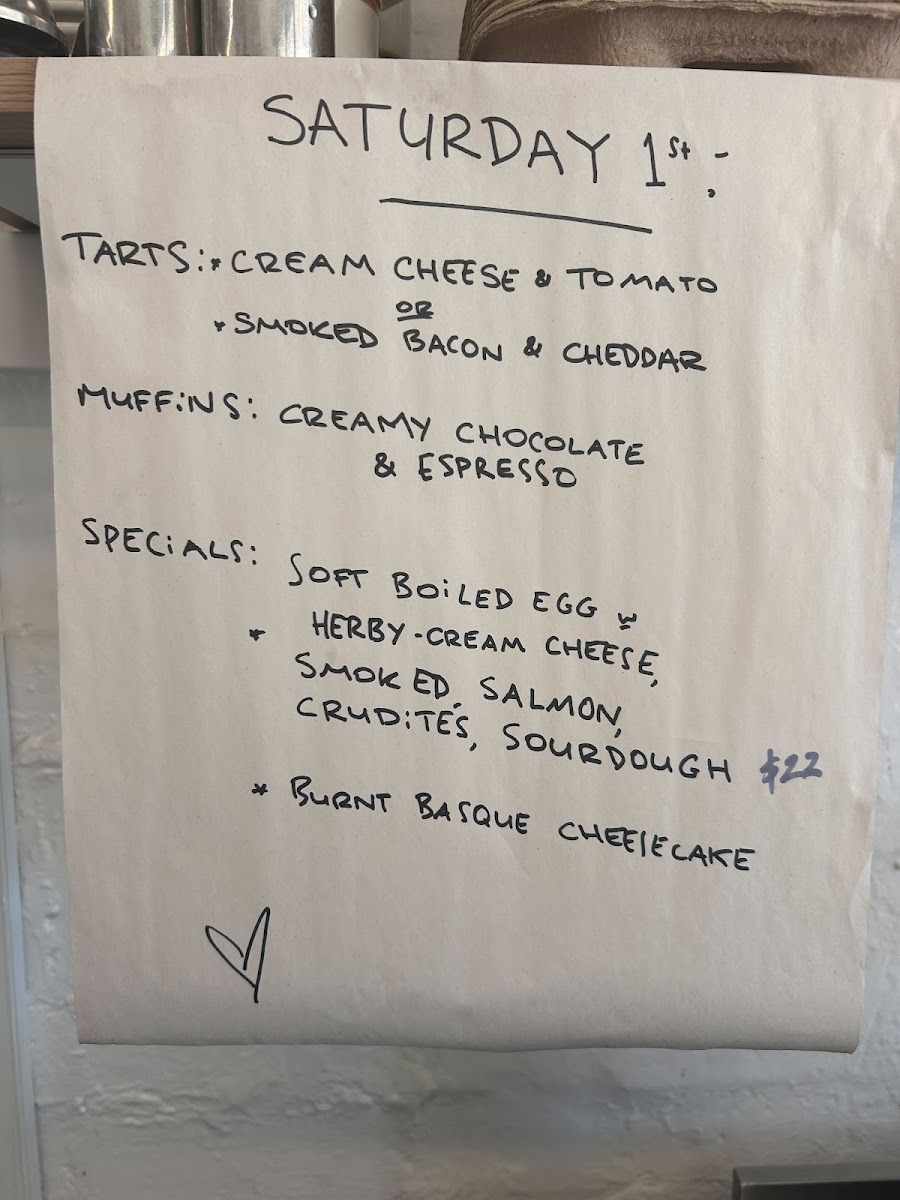 SATURDAY 1st:
TARTS: * CREAM CHEESE & TOMATO
OR
* SMOKED BACON & CHEDDAR
MUFFiNS: CREAMY CHOCOLATE
& ESPRESSO
SPECiALS:
SOFT BOiLED EGG w
* HERBY-CREAM CHEESE,
SMOKED SALMON,
CRUDiTÉS, SOURDOUGH $22
* BURNT BASQUE CHEESECAKE